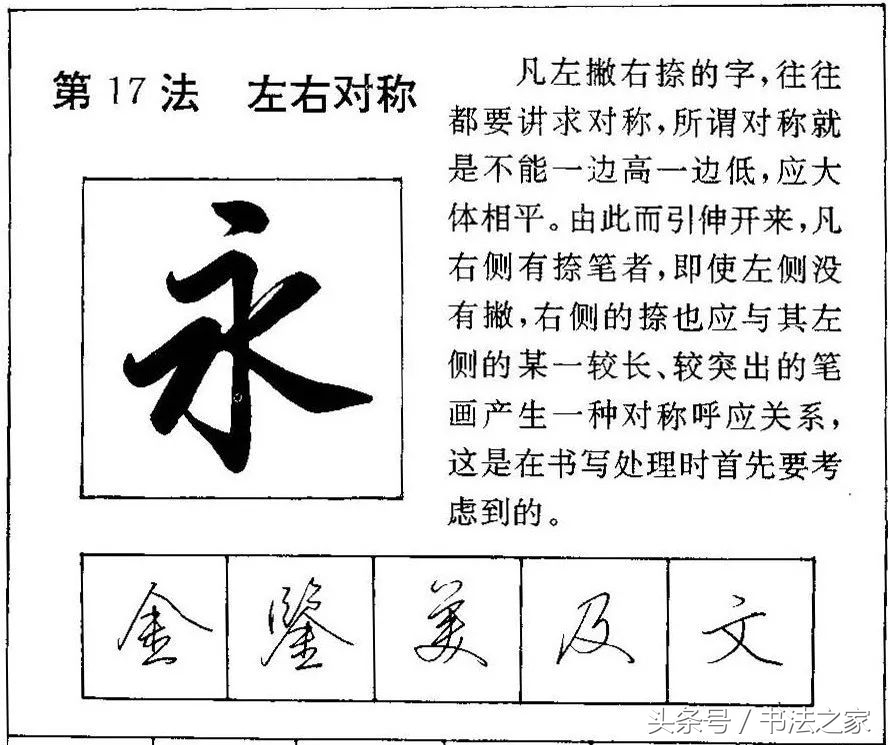 第17法 左右对称
凡左撇右捺的字,往往
都要讲求对称,所谓对称就
是不能一边高一边低,应大
体相平。由此而引伸开来,凡
右侧有捺笔者,即使左侧没
有撇,右侧的捺也应与其左
侧的某一较长、较突出的笔
画产生一种对称呼应关系,
这是在书写处理时首先要考
虑到的。
永
金 鑒 美 及 文
头条号 / 书法之家